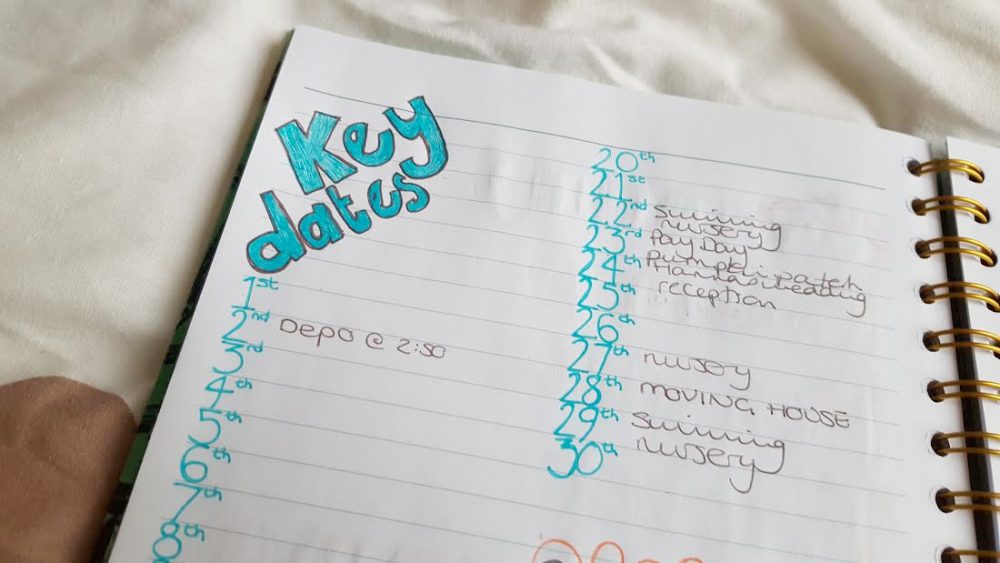 Key
dates
1st
2nd Depo @
3rd
4th
5th
6th
7th
8th
20th
21st
22nd swimming
nursery
23rd Pay Day
24th Pumpkin patch
Hannas wedding
25th reception
26th
27th nursery
28th MOVING HOUSE
29th swimming
30th nursery